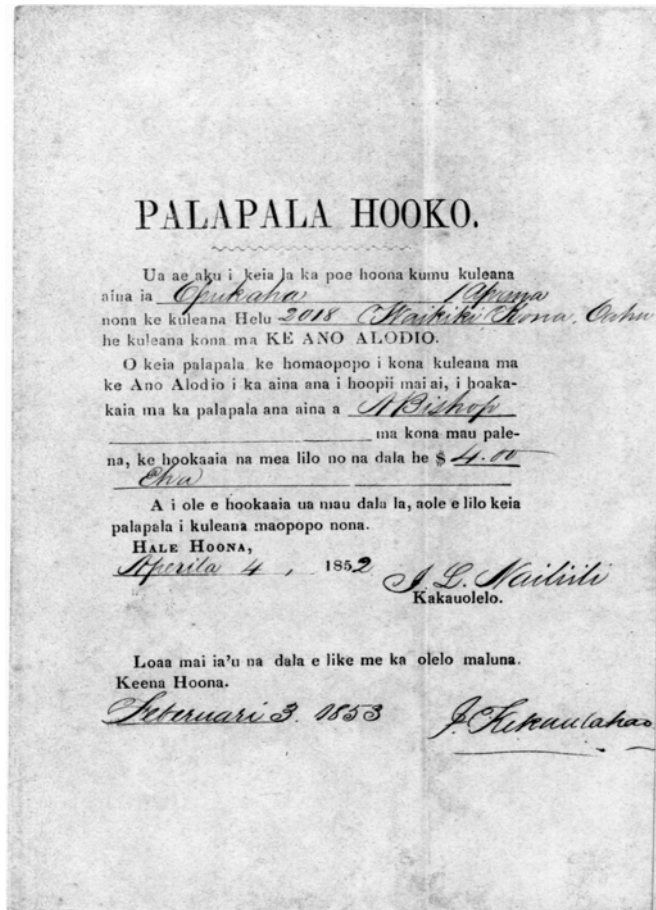 PALAPALA HOOKO.
Ua ae aku i keia la ka poe hoona kumu kuleana
aina ia Opukaha 1 Apana
nona ke kuleana Helu 2018 Waikiki Kona. Oahu
he kuleana kona ma KE ANO ALODIO.
O keia palapala ke homaopopo i kona kuleana ma
ke Ano Alodio i ka aina ana i hoopii mai ai, i hoaka-
kaia ma ka palapala ana aina a A Bishop
ma kona mau pale-
na, ke hookaaia na mea lilo no na dala he $ 4.00
Eha
A i ole e hookaaia ua mau dala la, aole e lilo keia
palapala i kuleana maopopo nona.
HALE HOONA,
Aperila 4, 1852
J. L. Nailiili
Kakauolelo.
Loaa mai ia'u na dala e like me ka olelo maluna.
Keena Hoona.
Feberuari 3. 1853 J. Kekaulahao